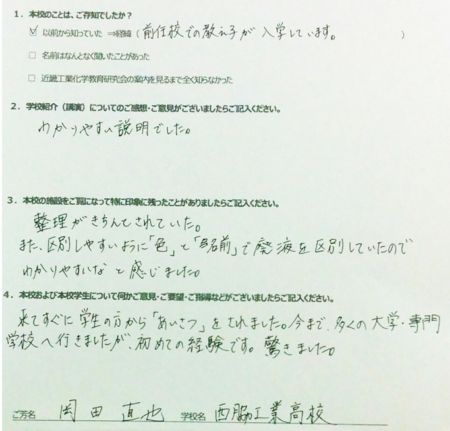 1．本校のことは、ご存知でしたか？
☑ 以前から知っていた ⇒経緯（前任校での教え子が入学しています。）
□ 名前はなんとなく聞いたことがあった
□ 近畿工業化学教育研究会の案内を見るまで全く知らなかった
2．学校紹介（講演）についてのご感想・ご意見がございましたらご記入ください。
わかりやすい説明でした。
3．本校の施設をご覧になって特に印象に残ったことがありましたらご記入ください。
整理がきちんとされていた。
また、区別しやすいように「色」と「名前」で廃液を区別していたので
わかりやすいなと感じました。
4．本校および本校学生について何かご意見・ご要望・ご指導などがございましたらご記入ください。
来てすぐに学生の方から「あいさつ」をされました。今まで、多くの大学・専門
学校へ行きましたが、初めての経験です。驚きました。
ご芳名 岡田 直也 学校名 西脇工業高校